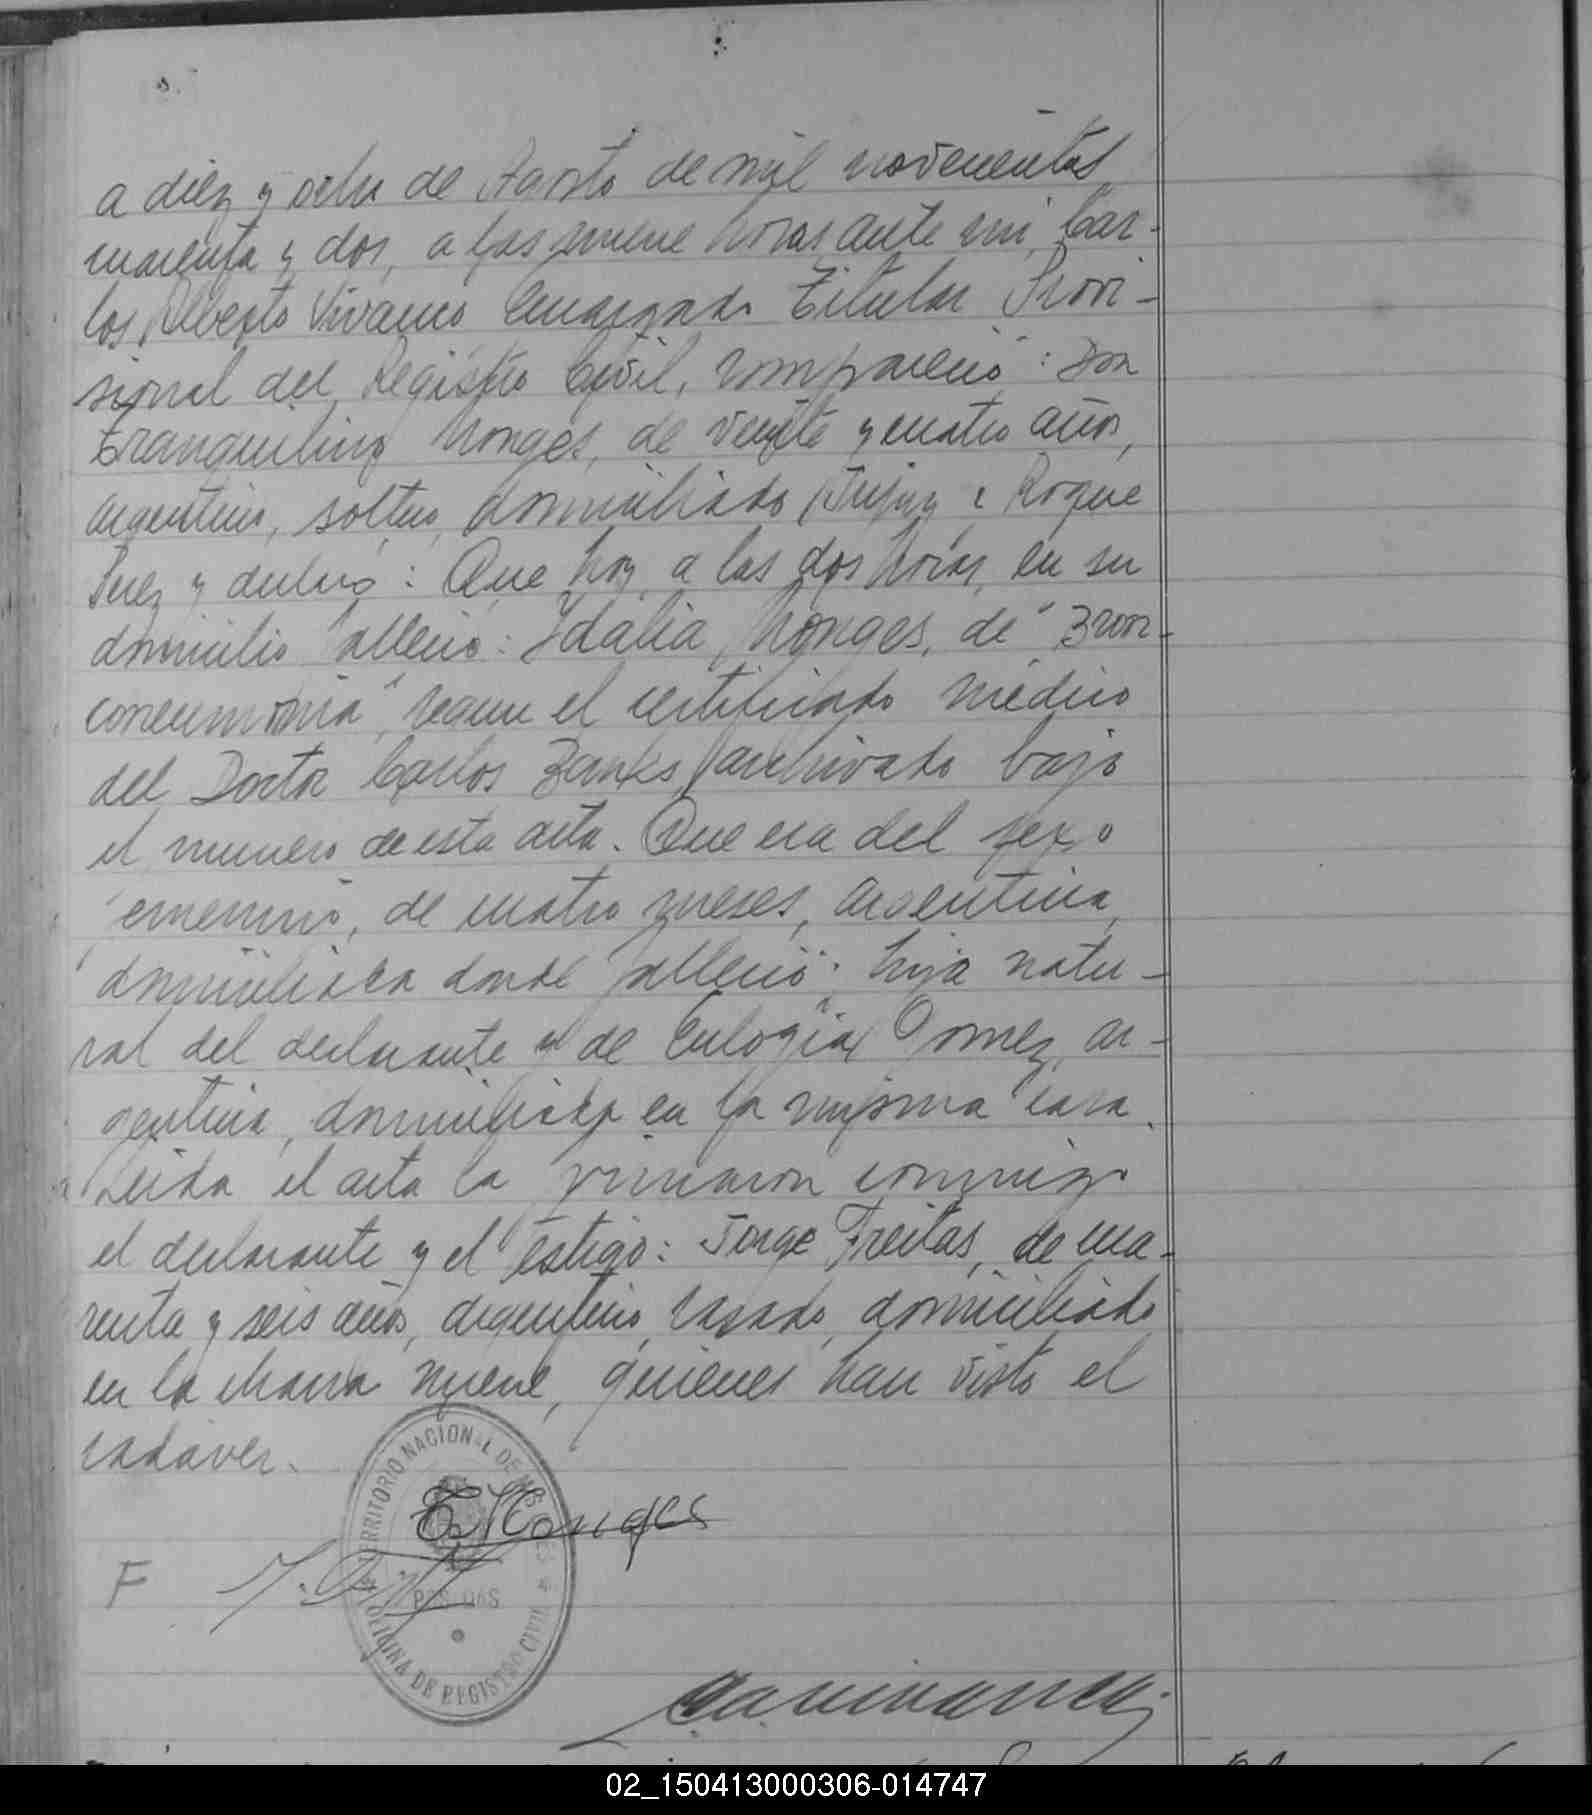 a diez y ocho de Agosto de mil novecientos
cuarenta y dos, a las nueve horas, ante mi, Car-
los Alberto Vivanco Encargado Titular Provi-
sional del Registro Civil, compareció: Don
Tranquilino Monges, de veinte y cuatro años,
argentino, soltero, domiciliado Jujuy e Roque
Perez y declaró: Que hoy, a las dos horas, en su
domicilio falleció: Idalia Monges, de "Bron-
coneumonia", segun el certificado médico
del Doctor Carlos Banks, archivado bajo
el numero de esta acta. Que era del sexo
femenino, de cuatro meses, argentina,
domiciliada donde falleció; hija natu-
ral del declarante y de Eulogia Gomez, ar-
gentina, domiciliada en la misma casa.
Leida el acta la firmaron conmigo
el declarante y el testigo: Jorge Freitas, de cua-
renta y seis años, argentino, casado, domiciliado
en la chacra nueve, quienes han visto el
cadaver.
TERRITORIO NACIONAL DE MISIONES
T. Monges
F
POSADAS
OFICINA DE REGISTRO CIVIL
02_150413000306-014747